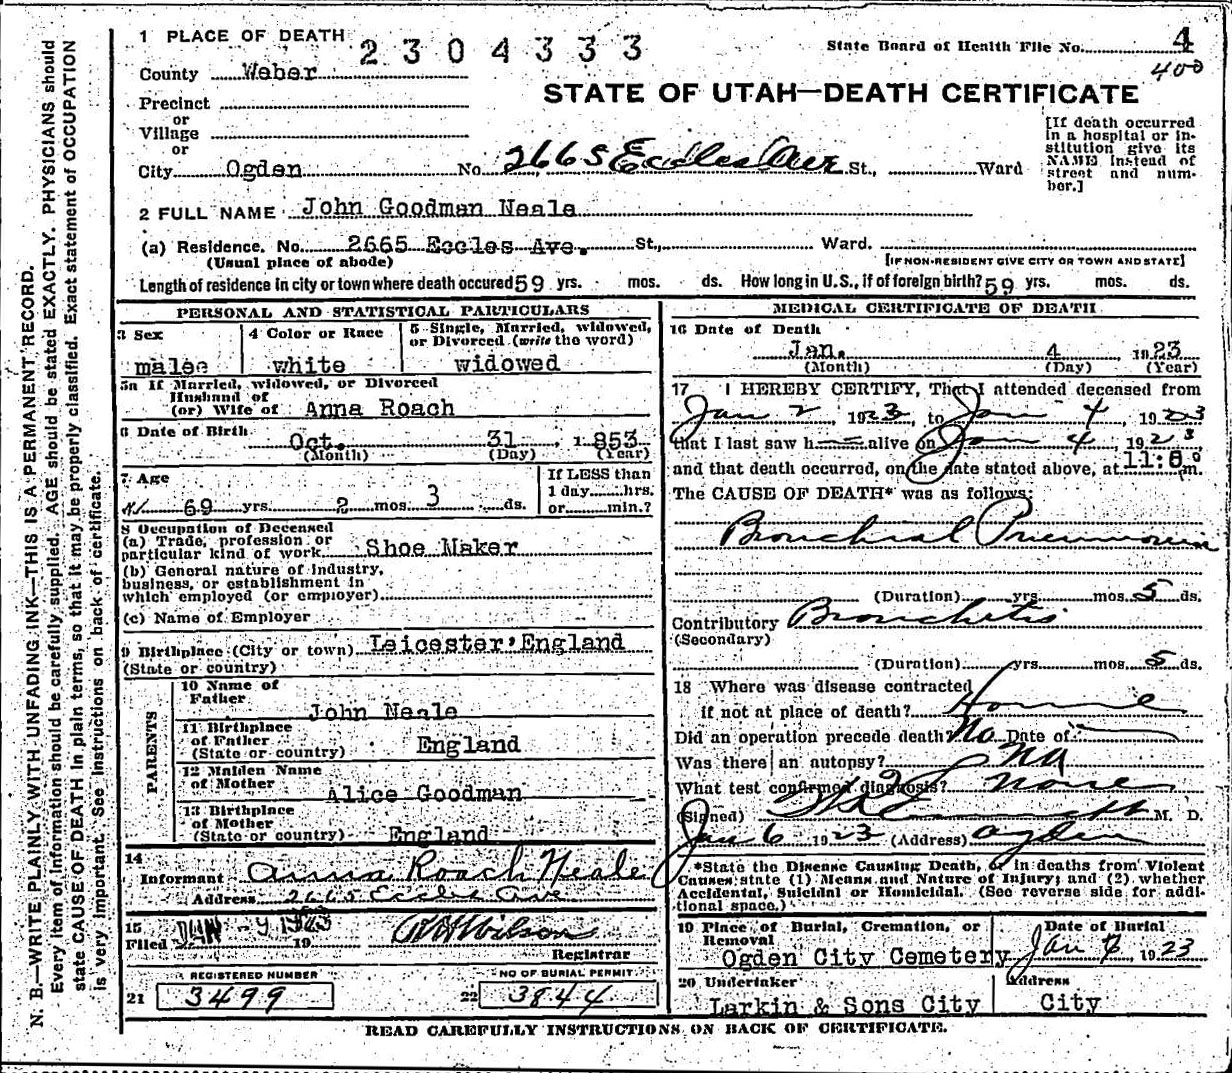 1 PLACE OF DEATH 2304333
State Board of Health File No. 4
400
County Weber
STATE OF UTAH—DEATH CERTIFICATE
Precinct
or
Village
or
City Ogden No. 2665 Eccles Ave St., Ward
[If death occurred
in a hospital or in-
stitution give its
NAME instead of
street and num-
ber.]
2 FULL NAME John Goodman Neale
(a) Residence. No. 2665 Eccles Ave. St., Ward.
(Usual place of abode) [IF NON-RESIDENT GIVE CITY OR TOWN AND STATE]
Length of residence in city or town where death occured 59 yrs. mos. ds. How long in U.S., if of foreign birth? 59 yrs. mos. ds.
PERSONAL AND STATISTICAL PARTICULARS
3 Sex
malee
4 Color or Race
white
5 Single, Married, widowed,
or Divorced (write the word)
widowed
5a If Married, widowed, or Divorced
Husband of
(or) Wife of Anna Roach
6 Date of Birth
Oct. 31, 1853
(Month) (Day) (Year)
7 Age
69 yrs. 2 mos. 3 ds.
If LESS than
1 day hrs.
or min.?
8 Occupation of Deceased
(a) Trade, profession or
particular kind of work Shoe Maker
(b) General nature of industry,
business, or establishment in
which employed (or employer)
(c) Name of Employer
9 Birthplace (City or town) Leicester, England
(State or country)
PARENTS
10 Name of
Father
John Neale
11 Birthplace
of Father England
(State or country)
12 Maiden Name
of Mother
Alice Goodman
13 Birthplace
of Mother
(State or country) England
14
Informant Anna Roach Neale
Address 2665 Eccles Ave
15
Filed JAN - 9 1923 19
R H Wilson
Registrar
REGISTERED NUMBER NO OF BURIAL PERMIT
21 3499 22 3844
MEDICAL CERTIFICATE OF DEATH
16 Date of Death
Jan. 4, 1923
(Month) (Day) (Year)
17 I HEREBY CERTIFY, That I attended deceased from
Jan 2, 1923, to Jan 4, 1923
that I last saw h alive on Jan 4, 1923
and that death occurred, on the date stated above, at 11:00 m.
The CAUSE OF DEATH* was as follows:
Bronchial Pneumonia
(Duration) yrs. mos. 5 ds.
Contributory Bronchitis
(Secondary)
(Duration) yrs. mos. 5 ds.
18 Where was disease contracted
if not at place of death? Home
Did an operation precede death? No Date of
Was there an autopsy? no
What test confirmed diagnosis? none
(Signed) M. D.
Jan 6 1923 (Address) Ogden
*State the Disease Causing Death, or in deaths from Violent
Causes state (1) Means and Nature of Injury; and (2) whether
Accidental, Suicidal or Homicidal. (See reverse side for addi-
tional space.)
19 Place of Burial, Cremation, or
Removal
Ogden City Cemetery
Date of Burial
Jan 7, 1923
20 Undertaker
Larkin & Sons City
Address
City
READ CAREFULLY INSTRUCTIONS ON BACK OF CERTIFICATE.
N. B.—WRITE PLAINLY, WITH UNFADING INK—THIS IS A PERMANENT RECORD.
Every item of information should be carefully supplied. AGE should be stated EXACTLY. PHYSICIANS should
state CAUSE OF DEATH in plain terms, so that it may be properly classified. Exact statement of OCCUPATION
is very important. See instructions on back of certificate.